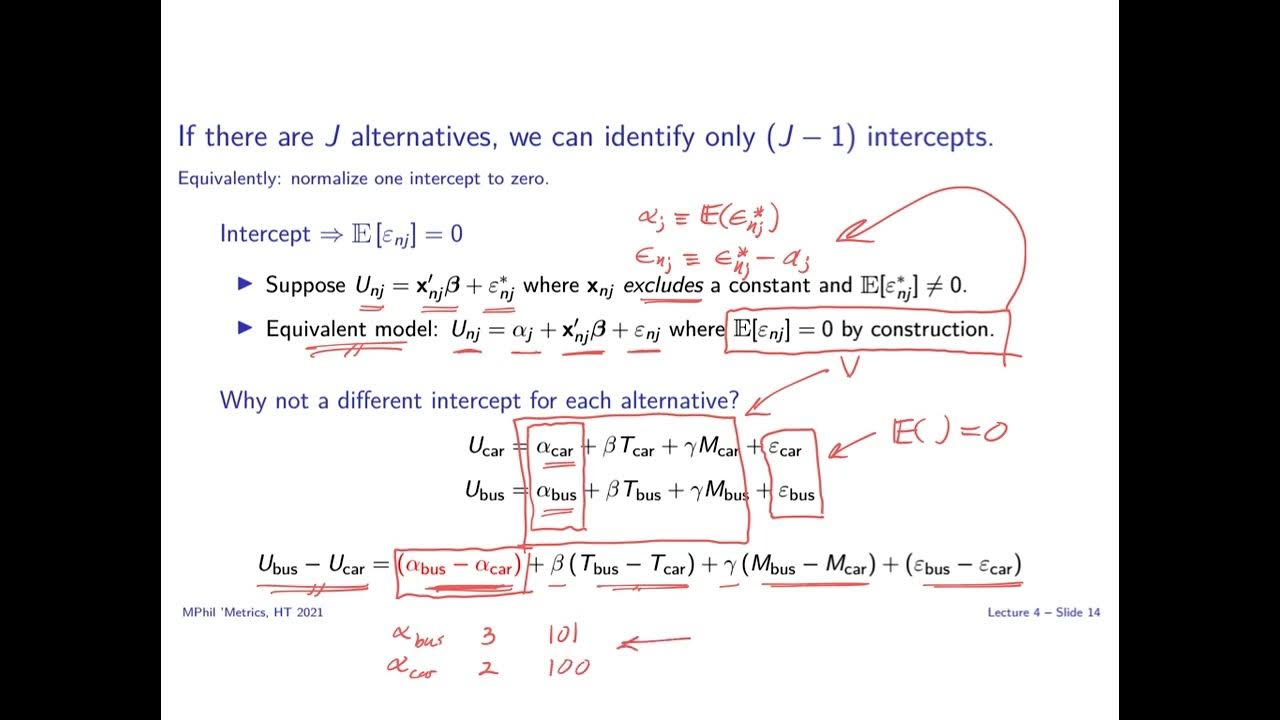 If there are J alternatives, we can identify only (J − 1) intercepts.
Equivalently: normalize one intercept to zero.
αⱼ ≡ 𝔼(ϵ*ₙⱼ)
Intercept ⇒ 𝔼[εₙⱼ] = 0
ϵₙⱼ ≡ ϵ*ₙⱼ − αⱼ
▶ Suppose Uₙⱼ = x′ₙⱼβ + ε*ₙⱼ where xₙⱼ excludes a constant and 𝔼[ε*ₙⱼ] ≠ 0.
▶ Equivalent model: Uₙⱼ = αⱼ + x′ₙⱼβ + εₙⱼ where 𝔼[εₙⱼ] = 0 by construction.
V
Why not a different intercept for each alternative?
U_car = α_car + βT_car + γM_car + ε_car
𝔼( ) = 0
U_bus = α_bus + βT_bus + γM_bus + ε_bus
U_bus − U_car = (α_bus − α_car) + β(T_bus − T_car) + γ(M_bus − M_car) + (ε_bus − ε_car)
MPhil 'Metrics, HT 2021
Lecture 4 – Slide 14
α_bus 3 101
α_car 2 100